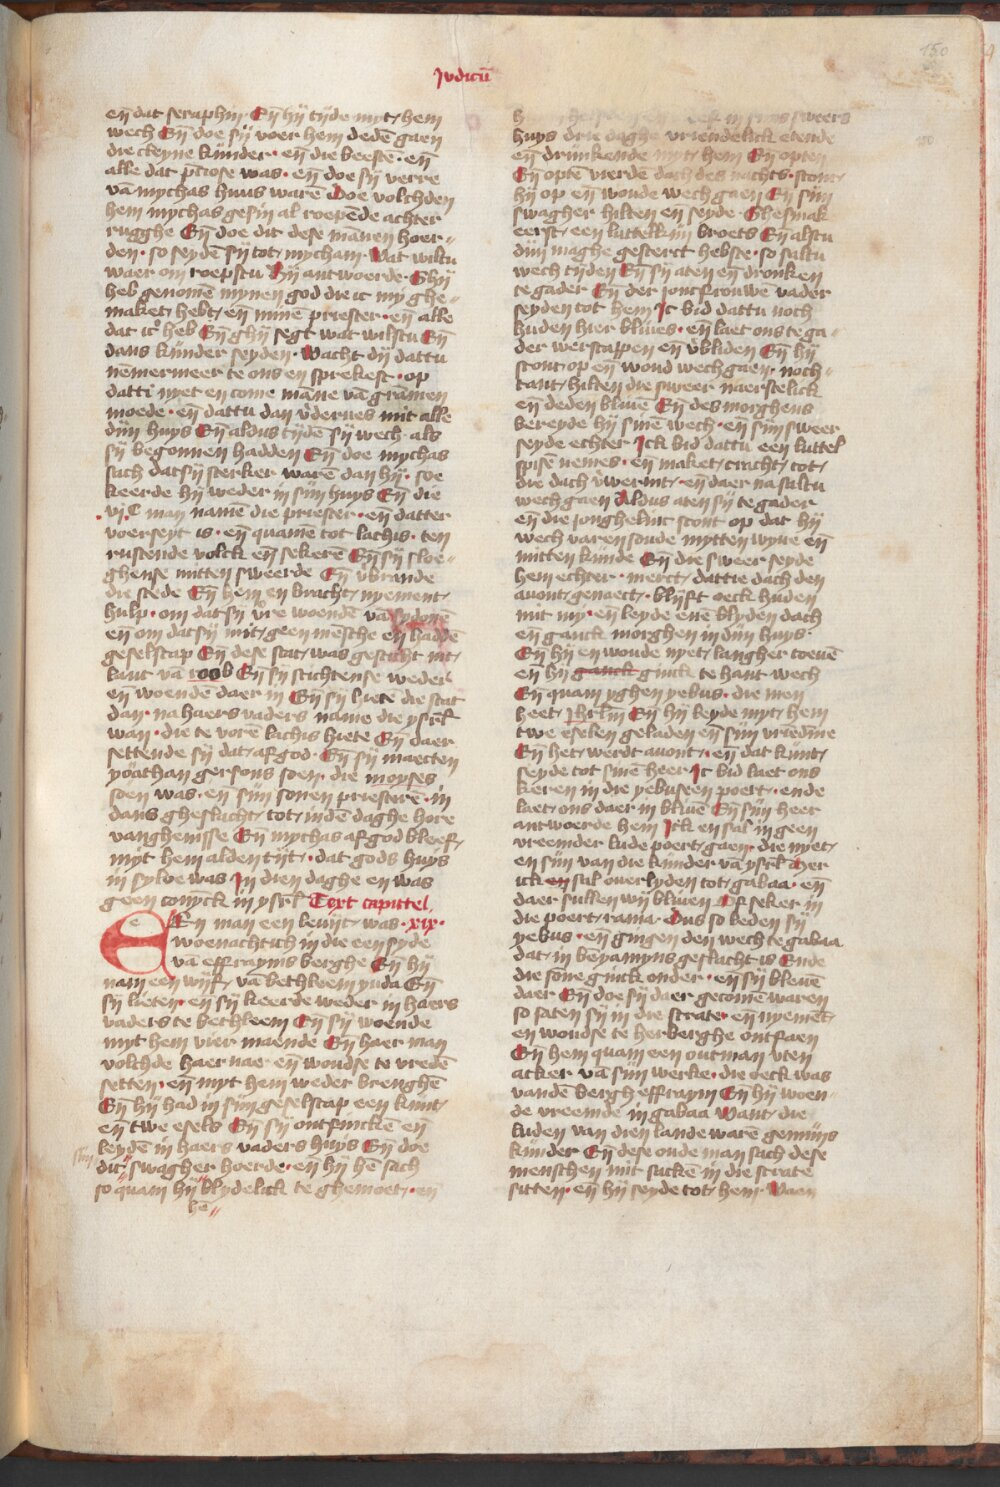 Judicū
150
en̄ dat seraphin · En̄ hij tijde myt hem
wech En̄ doe sij voer hem dedē gaen
die cleyne kinder · en̄ die beeste · en̄
alle dat p̄ciose was · en̄ doe sij verre
vā mychas huus warē Doe volchden
hem mychas gesin al roepēde achter
rugghe En̄ doe dit dese mānen hoer„
den · so seydē sij tot mycham · Wat wiltu
waer om roepstu Hij antwoerde · Ghij
heb genomē mynen god die ic my ghe„
maket hebt en̄ minē priester · en̄ alle
dat ic heb En̄ ghij segt wat wilstu En̄
dans kinder seyden · Wacht dij dattu
nēmermeer te ons en sprekest · op
datti nyet en come māne vā grāmen
moede · en̄ dattu dan v̄dernes mit alle
dijn huys En̄ aldus tijdē sij wech · als
sij begonnen hadden En̄ doe mychas
sach dat sij sterker warē dan hij · soe
keerde hij weder in sijn huys En̄ die
vjC man namē die priester · en̄ datter
voerseyt is · en̄ quamē tot lachis · ten
rustende volck en̄ sekerē En̄ sij sloe„
ghense mitten sweerde En̄ v̄brande
die stede En̄ hem en bracht nyement
hulp · om dat sij v̄re woendē vā sydonē
en̄ om dat sij mit geen mēsche en haddē
geselscap En̄ dese stat was gesticht int
lant vā roob En̄ sij stichtense weder
en̄ woendē daer in En̄ sij hietē die stat
dan · na haers vaders name die ysrl̄
wan · die te vorē lachis hiete En̄ daer
settende sij dat afgod · En̄ sij maecten
yoathan gersons soen · die moyses
soen was · en̄ sijn sonen priesterē · in
dans gheslacht tot in dē daghe hore
vanghenisse En̄ mychas afgod bleef
myt hem alden tijt · dat gods huys
in sylve was In dien daghe en was
geen conyck in ysrl̄ Text capittel
EEn man een leuijt was · xix ·
woenachtich in die een syde
vā effrayms berghe En̄ hij
nam een wijf vā bethleem yuda En̄
sij lieten · en̄ sij keerde weder in haers
vaders te bethleem En̄ sij woende
myt hem vier maende En̄ haer man
volchde haer nae en̄ woudse te vredē
setten · en̄ myt hem weder brenghē
En̄ hij had in sijn geselscap een kint
en̄ twe esels En̄ sij ontfinckē en̄
leydē in haers vaders huys En̄ doe
dit swagher hoerde · en̄ hij hē sach
so quam hij blydelick te ghemoet · en̄
he„
sijn
in sijns sweers
huys drie daghe vriendelick etende
en̄ drinkende myt hem En̄ opten
En̄ optē vierde dach des nachts · stont
hij op en̄ woude wech gaen En̄ sijn
swagher hilten en̄ seyde · Ghesmak
eerst een luttelkijn broets En̄ alstu
dijn maghe gesterct hebste · so saltu
wech tijden En̄ sij aten en̄ dronken
te gader En̄ der joncfrouwē vader
seyden tot hem Ic bid dattu noch
huden hier blives · en̄ laet ons te ga„
der werscappen en̄ v̄bliden En̄ hij
stont op en̄ woud wech gaen · noch„
tant hilten die sweer naerstelick
en̄ deden blivē En̄ des morghens
bereyde hij sinē wech · en̄ sijn sweer
seyde echter Ick bid dattu een luttel
spisē nemes · en̄ maket cracht tot
die dach v̄werint · en̄ daer na saltu
wech gaen Aldus aten sij te gader
en̄ die jonghelinc stont op dat hij
wech varen soude mytten wyve en̄
mitten kinde En̄ die sweer seyde
hem echter · merct dattie dach den
auont genaect · blijft oeck huden
mit my · en̄ leyde enē blyden dach
en̄ ganck morghen in dijn huys ·
En̄ hij en woude nyet langher toeuē
en̄ hij ganck ginck te hant wech
En̄ quam yghen yebus · die men
heet jhrlm̄ En̄ hij leyde myt hem
twe eselen geladen en̄ sijn vriedīne
En̄ het werdt auont · en̄ dat kint
seyde tot sinē heer Ic bid laet ons
kieren in die yebuseen poert · ende
laet ons daer in blivē En̄ sijn heer
antwoerde hem Ick en sal in geen
vreemder lude poert gaen · die nyet
en sijn van die kinder vā ysrl̄ Mer
ick en sal ouerlyden tot gabaa · en̄
daer sullen wij bliven Of seker in
die poert rama · Dus so leden sij
yebus · en̄ gingen den wech te gabaa
dat in beyamyns geslacht is Ende
die sone ginck onder · en̄ sij bleuē
daer En̄ doe sij daer gecomē waren
so saten sij in die strate · en̄ nyemēt
en woudse te herberghe ontfaen
En̄ hem quam een outman vten
acker vā sijn werke · die oeck was
vandē bergh effraym En̄ hij woen„
de vreemde in gabaa Want die
luden van dien lande warē gemijns
kinder En̄ dese oude man sach dese
menschen mit sackē in die strate
sitten · en̄ hij seyde tot hem · Waen